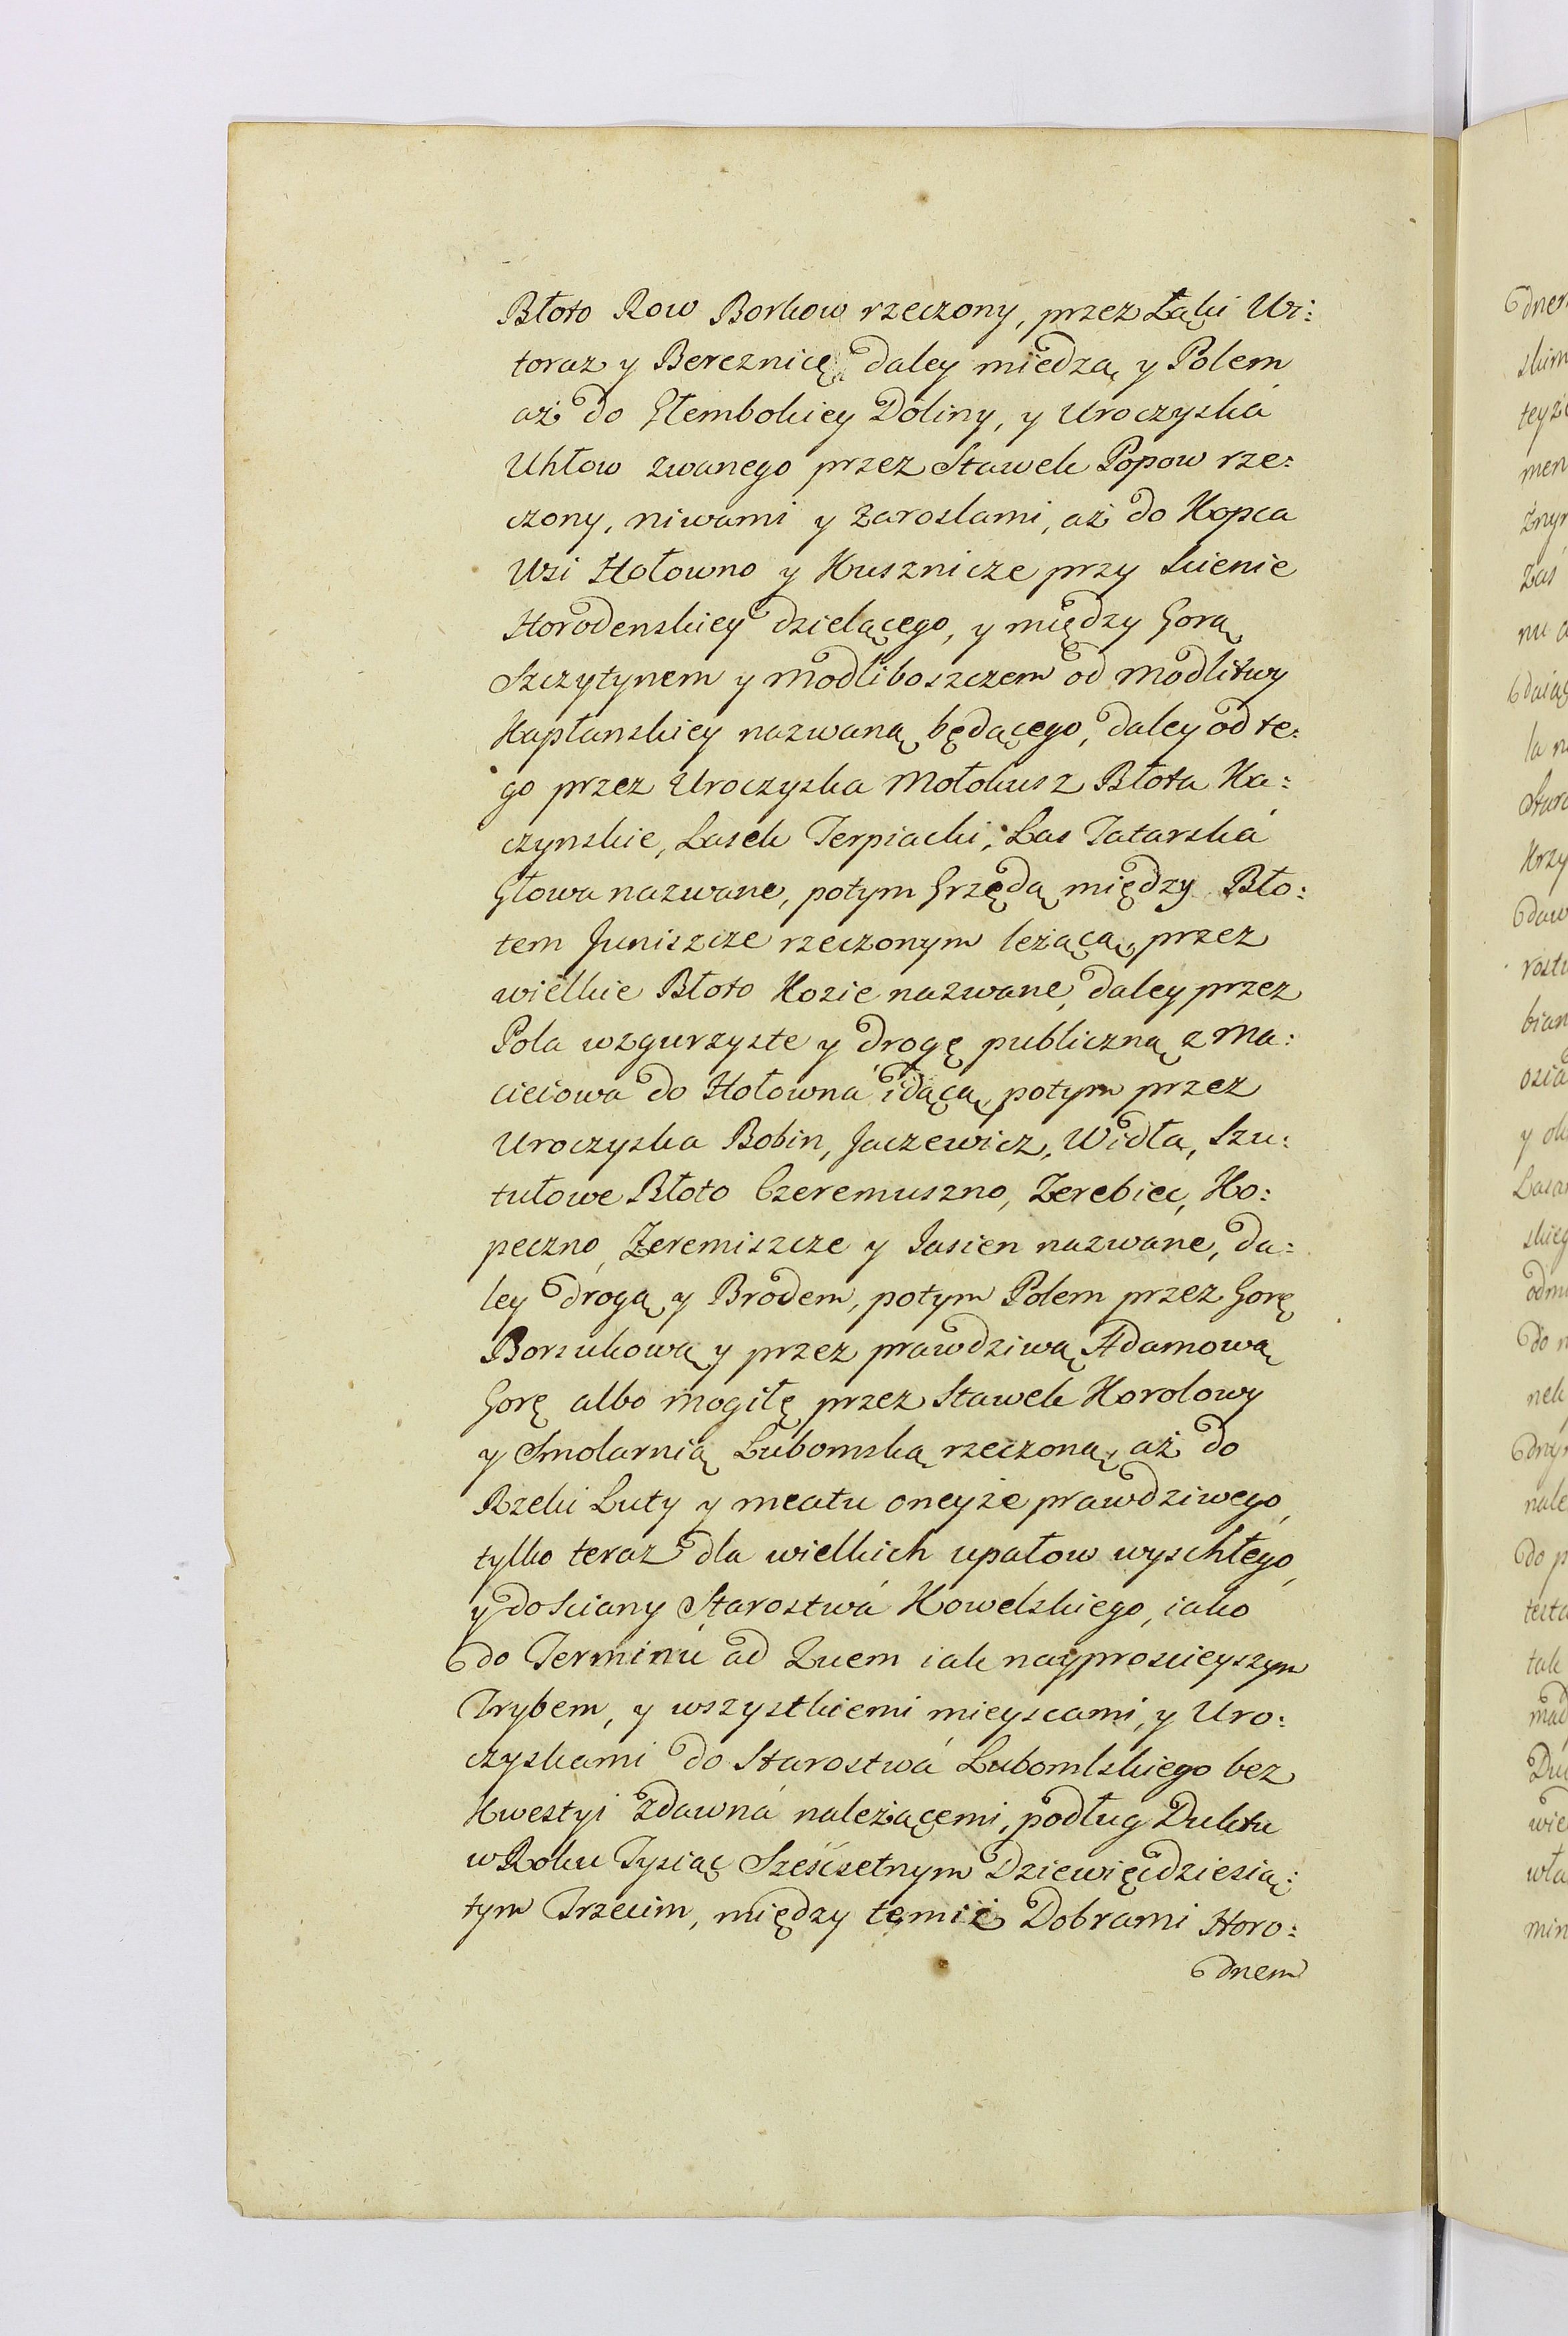 Błoto Row Borkow rzeczony, przez Łąki Ur:
toraz y Bereznicę daley miedzą y Polem
aż do Głembokiey Doliny, y Uroczyská
Uhłow zwanego przez Stawek Popow rze:
czony, niwami y Zaroslami, aż do Kopca
Wsi Hołowno y Kusznicze przy Scienie
Horodenskiey dzielącego, y między Gorą
Szczytynem y Modliboszczem od Modlitwy
Kapłanskiey nazwaną będącego, daley od te:
go przez Uroczyska Mołokusz Błota Ka:
czynskie, Lasek Terpiacki, Las Tatarská
Głowa nazwane, potym Grzędą między Bło:
tem Juniszcze rzeczonym leżącą, przez
wielkie Błoto Kozie nazwane, daley przez
Pola wzgurzyste y drogę publiczną z Ma:
cieiowa do Hołowná idącą, potym przez
Uroczyska Bobin, Jaczewicz, Widła, Szu:
tułowe Błoto Czeremuszno, Zerebiec, Ko:
peczno, Zeremiszcze y Jasien nazwane, da:
ley drogą y Brodem, potym Polem przez Gorę
Borsukową y przez prawdziwą Adamową
Gorę albo mogiłę przez Stawek Korolowy
y Smolarnią Lubomską rzeczoną, aż do
Rzeki Luty y meatu oneyże prawdziwego,
tylko teraz dla wielkich upałow wyschłego,
y do Sciany Starostwá Kowelskiego, iako
do Terminu ad Quem iak nayproscieyszym
Trybem, y wszystkiemi mieyscami, y Uro:
czyskami do Starostwá Lubomlskiego bez
Kwestyi zdawná należącemi, podług Duktu
w Roku Tysiąc Sześćsetnym Dziewięćdziesią:
tym Trzecim, między temiż Dobrami Horo:
dnem